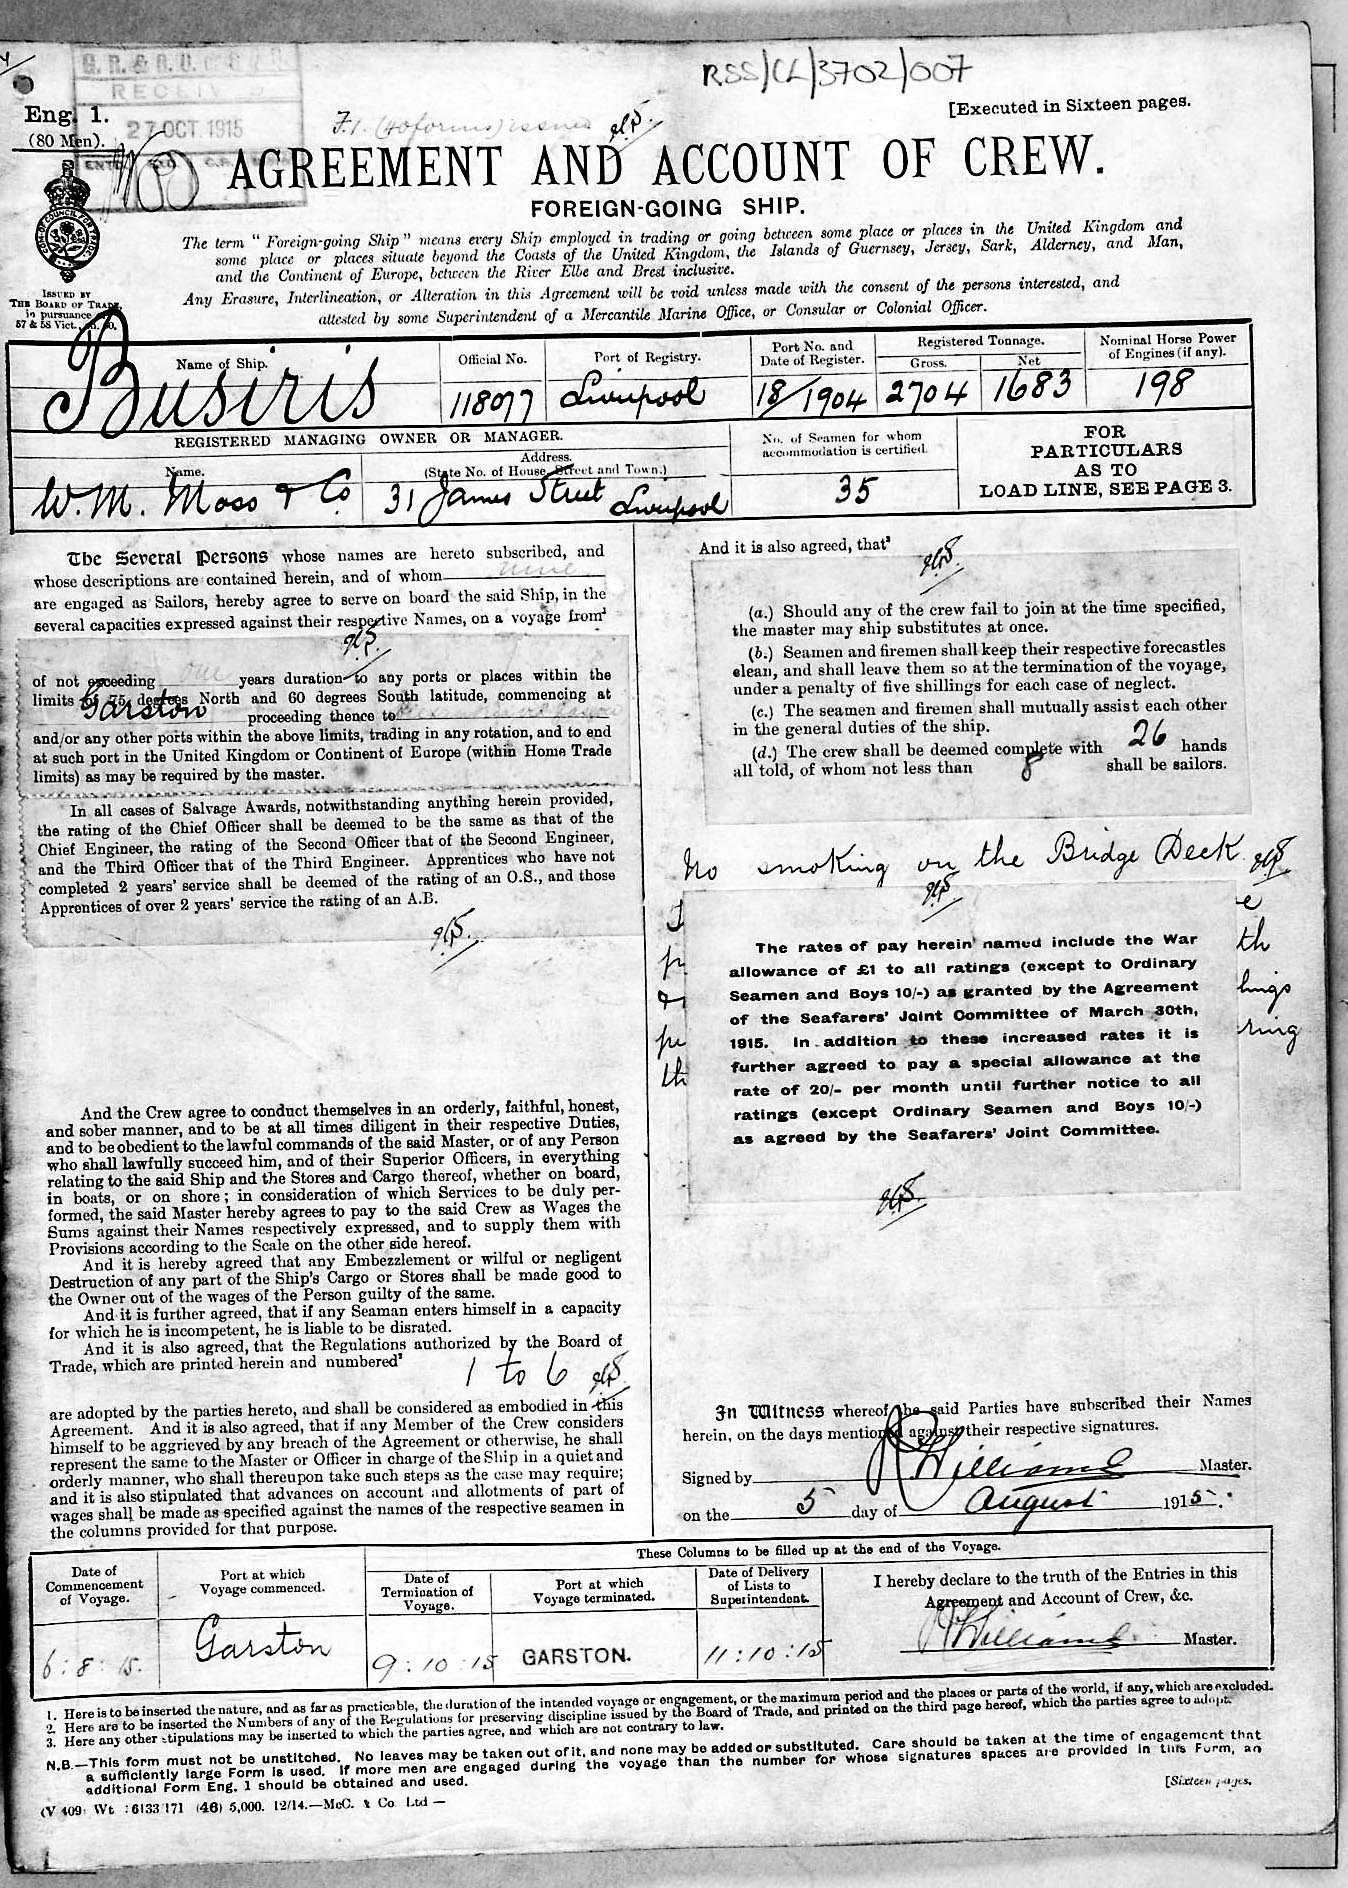 RSS/CL/3702/007
RECEIVED
27 OCT 1915
[Executed in Sixteen pages.
Eng. 1.
(80 Men).
AGREEMENT AND ACCOUNT OF CREW.
FOREIGN-GOING SHIP.
The term "Foreign-going Ship" means every Ship employed in trading or going between some place or places in the United Kingdom and
some place or places situate beyond the Coasts of the United Kingdom, the Islands of Guernsey, Jersey, Sark, Alderney, and Man,
and the Continent of Europe, between the River Elbe and Brest inclusive.
Any Erasure, Interlineation, or Alteration in this Agreement will be void unless made with the consent of the persons interested, and
attested by some Superintendent of a Mercantile Marine Office, or Consular or Colonial Officer.
ISSUED BY
THE BOARD OF TRADE
in pursuance
57 & 58 Vict.,
Name of Ship.
Busiris
Official No.
118077
Port of Registry.
Liverpool
Port No. and
Date of Register.
18/1904
Registered Tonnage.
Gross.
2704
Net
1683
Nominal Horse Power
of Engines (if any).
198
REGISTERED MANAGING OWNER OR MANAGER.
Name.
W. M. Moss & Co
Address.
(State No. of House, Street and Town.)
31 James Street Liverpool
No. of Seamen for whom
accommodation is certified.
35
FOR
PARTICULARS
AS TO
LOAD LINE, SEE PAGE 3.
The Several Persons whose names are hereto subscribed, and
whose descriptions are contained herein, and of whom nine
are engaged as Sailors, hereby agree to serve on board the said Ship, in the
several capacities expressed against their respective Names, on a voyage from¹
of not exceeding one years duration to any ports or places within the
limits of 75 degrees North and 60 degrees South latitude, commencing at
Garston proceeding thence to
and/or any other ports within the above limits, trading in any rotation, and to end
at such port in the United Kingdom or Continent of Europe (within Home Trade
limits) as may be required by the master.
In all cases of Salvage Awards, notwithstanding anything herein provided,
the rating of the Chief Officer shall be deemed to be the same as that of the
Chief Engineer, the rating of the Second Officer that of the Second Engineer,
and the Third Officer that of the Third Engineer. Apprentices who have not
completed 2 years' service shall be deemed of the rating of an O.S., and those
Apprentices of over 2 years' service the rating of an A.B.
And the Crew agree to conduct themselves in an orderly, faithful, honest,
and sober manner, and to be at all times diligent in their respective Duties,
and to be obedient to the lawful commands of the said Master, or of any Person
who shall lawfully succeed him, and of their Superior Officers, in everything
relating to the said Ship and the Stores and Cargo thereof, whether on board,
in boats, or on shore; in consideration of which Services to be duly per-
formed, the said Master hereby agrees to pay to the said Crew as Wages the
Sums against their Names respectively expressed, and to supply them with
Provisions according to the Scale on the other side hereof.
And it is hereby agreed that any Embezzlement or wilful or negligent
Destruction of any part of the Ship's Cargo or Stores shall be made good to
the Owner out of the wages of the Person guilty of the same.
And it is further agreed, that if any Seaman enters himself in a capacity
for which he is incompetent, he is liable to be disrated.
And it is also agreed, that the Regulations authorized by the Board of
Trade, which are printed herein and numbered²
1 to 6
are adopted by the parties hereto, and shall be considered as embodied in this
Agreement. And it is also agreed, that if any Member of the Crew considers
himself to be aggrieved by any breach of the Agreement or otherwise, he shall
represent the same to the Master or Officer in charge of the Ship in a quiet and
orderly manner, who shall thereupon take such steps as the case may require;
and it is also stipulated that advances on account and allotments of part of
wages shall be made as specified against the names of the respective seamen in
the columns provided for that purpose.
And it is also agreed, that³
(a.) Should any of the crew fail to join at the time specified,
the master may ship substitutes at once.
(b.) Seamen and firemen shall keep their respective forecastles
clean, and shall leave them so at the termination of the voyage,
under a penalty of five shillings for each case of neglect.
(c.) The seamen and firemen shall mutually assist each other
in the general duties of the ship.
(d.) The crew shall be deemed complete with 26 hands
all told, of whom not less than 8 shall be sailors.
No smoking on the Bridge Deck
The rates of pay herein named include the War
allowance of £1 to all ratings (except to Ordinary
Seamen and Boys 10/-) as granted by the Agreement
of the Seafarers' Joint Committee of March 30th,
1915. In addition to these increased rates it is
further agreed to pay a special allowance at the
rate of 20/- per month until further notice to all
ratings (except Ordinary Seamen and Boys 10/-)
as agreed by the Seafarers' Joint Committee.
In Witness whereof the said Parties have subscribed their Names
herein, on the days mentioned against their respective signatures.
Signed by R Williams Master.
on the 5 day of August 1915.
Date of
Commencement
of Voyage.
6:8:15.
Port at which
Voyage commenced.
Garston
These Columns to be filled up at the end of the Voyage.
Date of
Termination of
Voyage.
9:10:15
Port at which
Voyage terminated.
GARSTON.
Date of Delivery
of Lists to
Superintendent.
11:10:15
I hereby declare to the truth of the Entries in this
Agreement and Account of Crew, &c.
R Williams Master.
1. Here is to be inserted the nature, and as far as practicable, the duration of the intended voyage or engagement, or the maximum period and the places or parts of the world, if any, which are excluded.
2. Here are to be inserted the Numbers of any of the Regulations for preserving discipline issued by the Board of Trade, and printed on the third page hereof, which the parties agree to adopt.
3. Here any other stipulations may be inserted to which the parties agree, and which are not contrary to law.
N.B.—This form must not be unstitched. No leaves may be taken out of it, and none may be added or substituted. Care should be taken at the time of engagement that
a sufficiently large Form is used. If more men are engaged during the voyage than the number for whose signatures spaces are provided in this Form, an
additional Form Eng. 1 should be obtained and used.
[Sixteen pages.
(V 409) Wt :6133/171 (46) 5,000. 12/14.—McC. & Co Ltd —